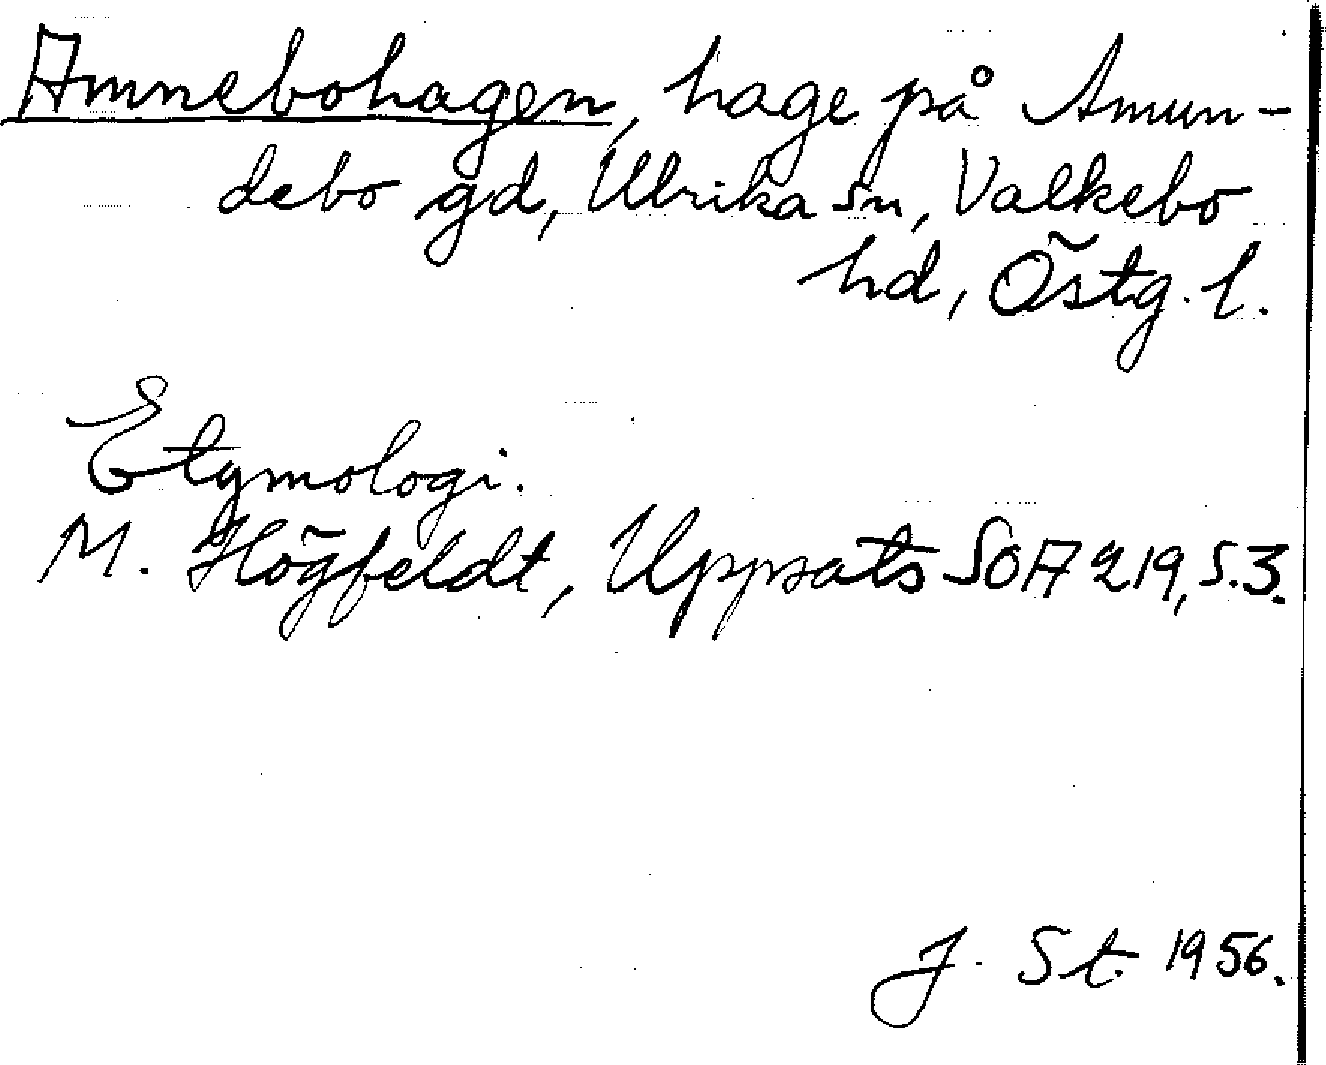 Amnebohagen, hage på Amun-
debo gd, Ulrika sn, Valkebo
hd, Östg. l.
Etymologi.
M. Högfeldt, Uppsats SOA 219, s. 3.
J. St. 1956.